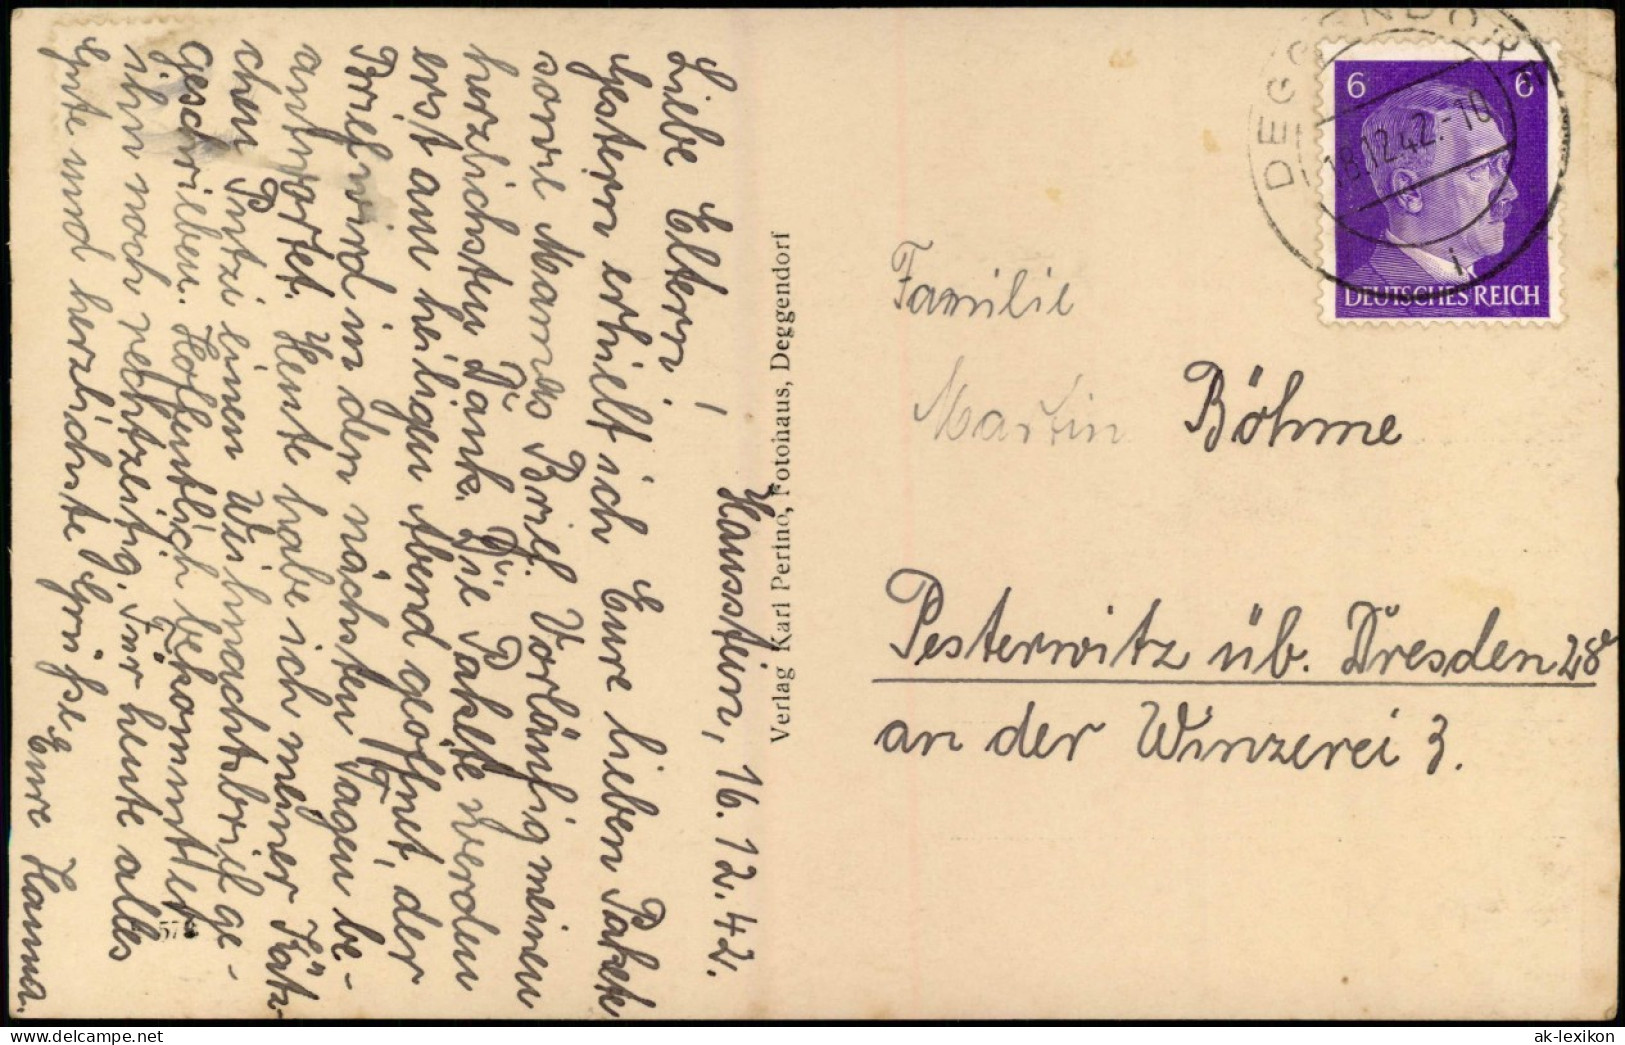 Hausstein, 16.12.42.
Liebe Eltern!
Gestern erhielt ich Eure lieben Pakete
sowie Mamas Brief. Vorläufig meinen
herzlichsten Dank. Die Pakete werden
erst am heiligen Abend geöffnet, der
Brief wird in den nächsten Tagen be-
antwortet. Heute habe ich meiner Kätz-
chen Putzi einen Weihnachtsbrief ge-
geschrieben. Hoffentlich bekommt er
ihn noch rechtzeitig. Für heute alles
Gute und herzlichste Grüße, Eure Hanna.
578
Verlag Karl Perino, Fotohaus, Deggendorf
DEGGENDORF
18.12.42.-10
i
6 6
DEUTSCHES REICH
Familie
Martin Böhme
Pesterwitz üb. Dresden 28
an der Winzerei 3.
© ak-ansichtskarten.de
ak-lexikon